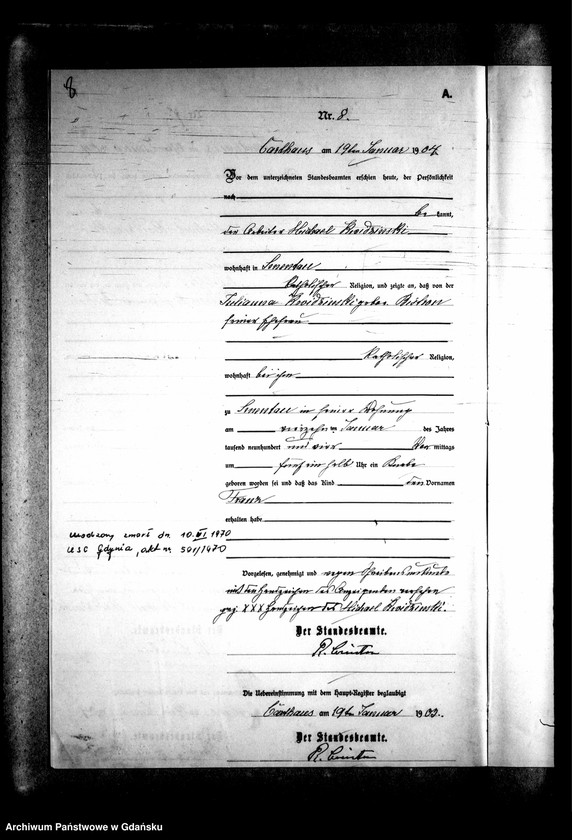 8
A.
Nr. 8.
Carthaus am 19ten Januar 1904.
Vor dem unterzeichneten Standesbeamten erschien heute, der Persönlichkeit
nach
be kannt,
der Arbeiter Michael Kwidzinski
wohnhaft in
katholischer Religion, und zeigte an, daß von der
Julianna Kwidzinski geborene
seiner Ehefrau
katholischer Religion,
wohnhaft bei ihm
zu in seiner Wohnung
am vierzehnten Januar des Jahres
tausend neunhundert und vier Vor mittags
um fünf ein halb Uhr ein Knabe
geboren worden sei und daß das Kind den Vornamen
Franz
erhalten habe
urodzony zmarł dn. 10.VI.1970
USC Gdynia, akt nr. 501/1970
Vorgelesen, genehmigt und wegen Schreibensunkunde
mit den Handzeichen des Anzeigenden versehen
gez. XXX Handzeichen des Michael Kwidzinski.
Der Standesbeamte.
Die Uebereinstimmung mit dem Haupt-Register beglaubigt
Carthaus am 19ten Januar 190
Der Standesbeamte.
Archiwum Państwowe w Gdańsku